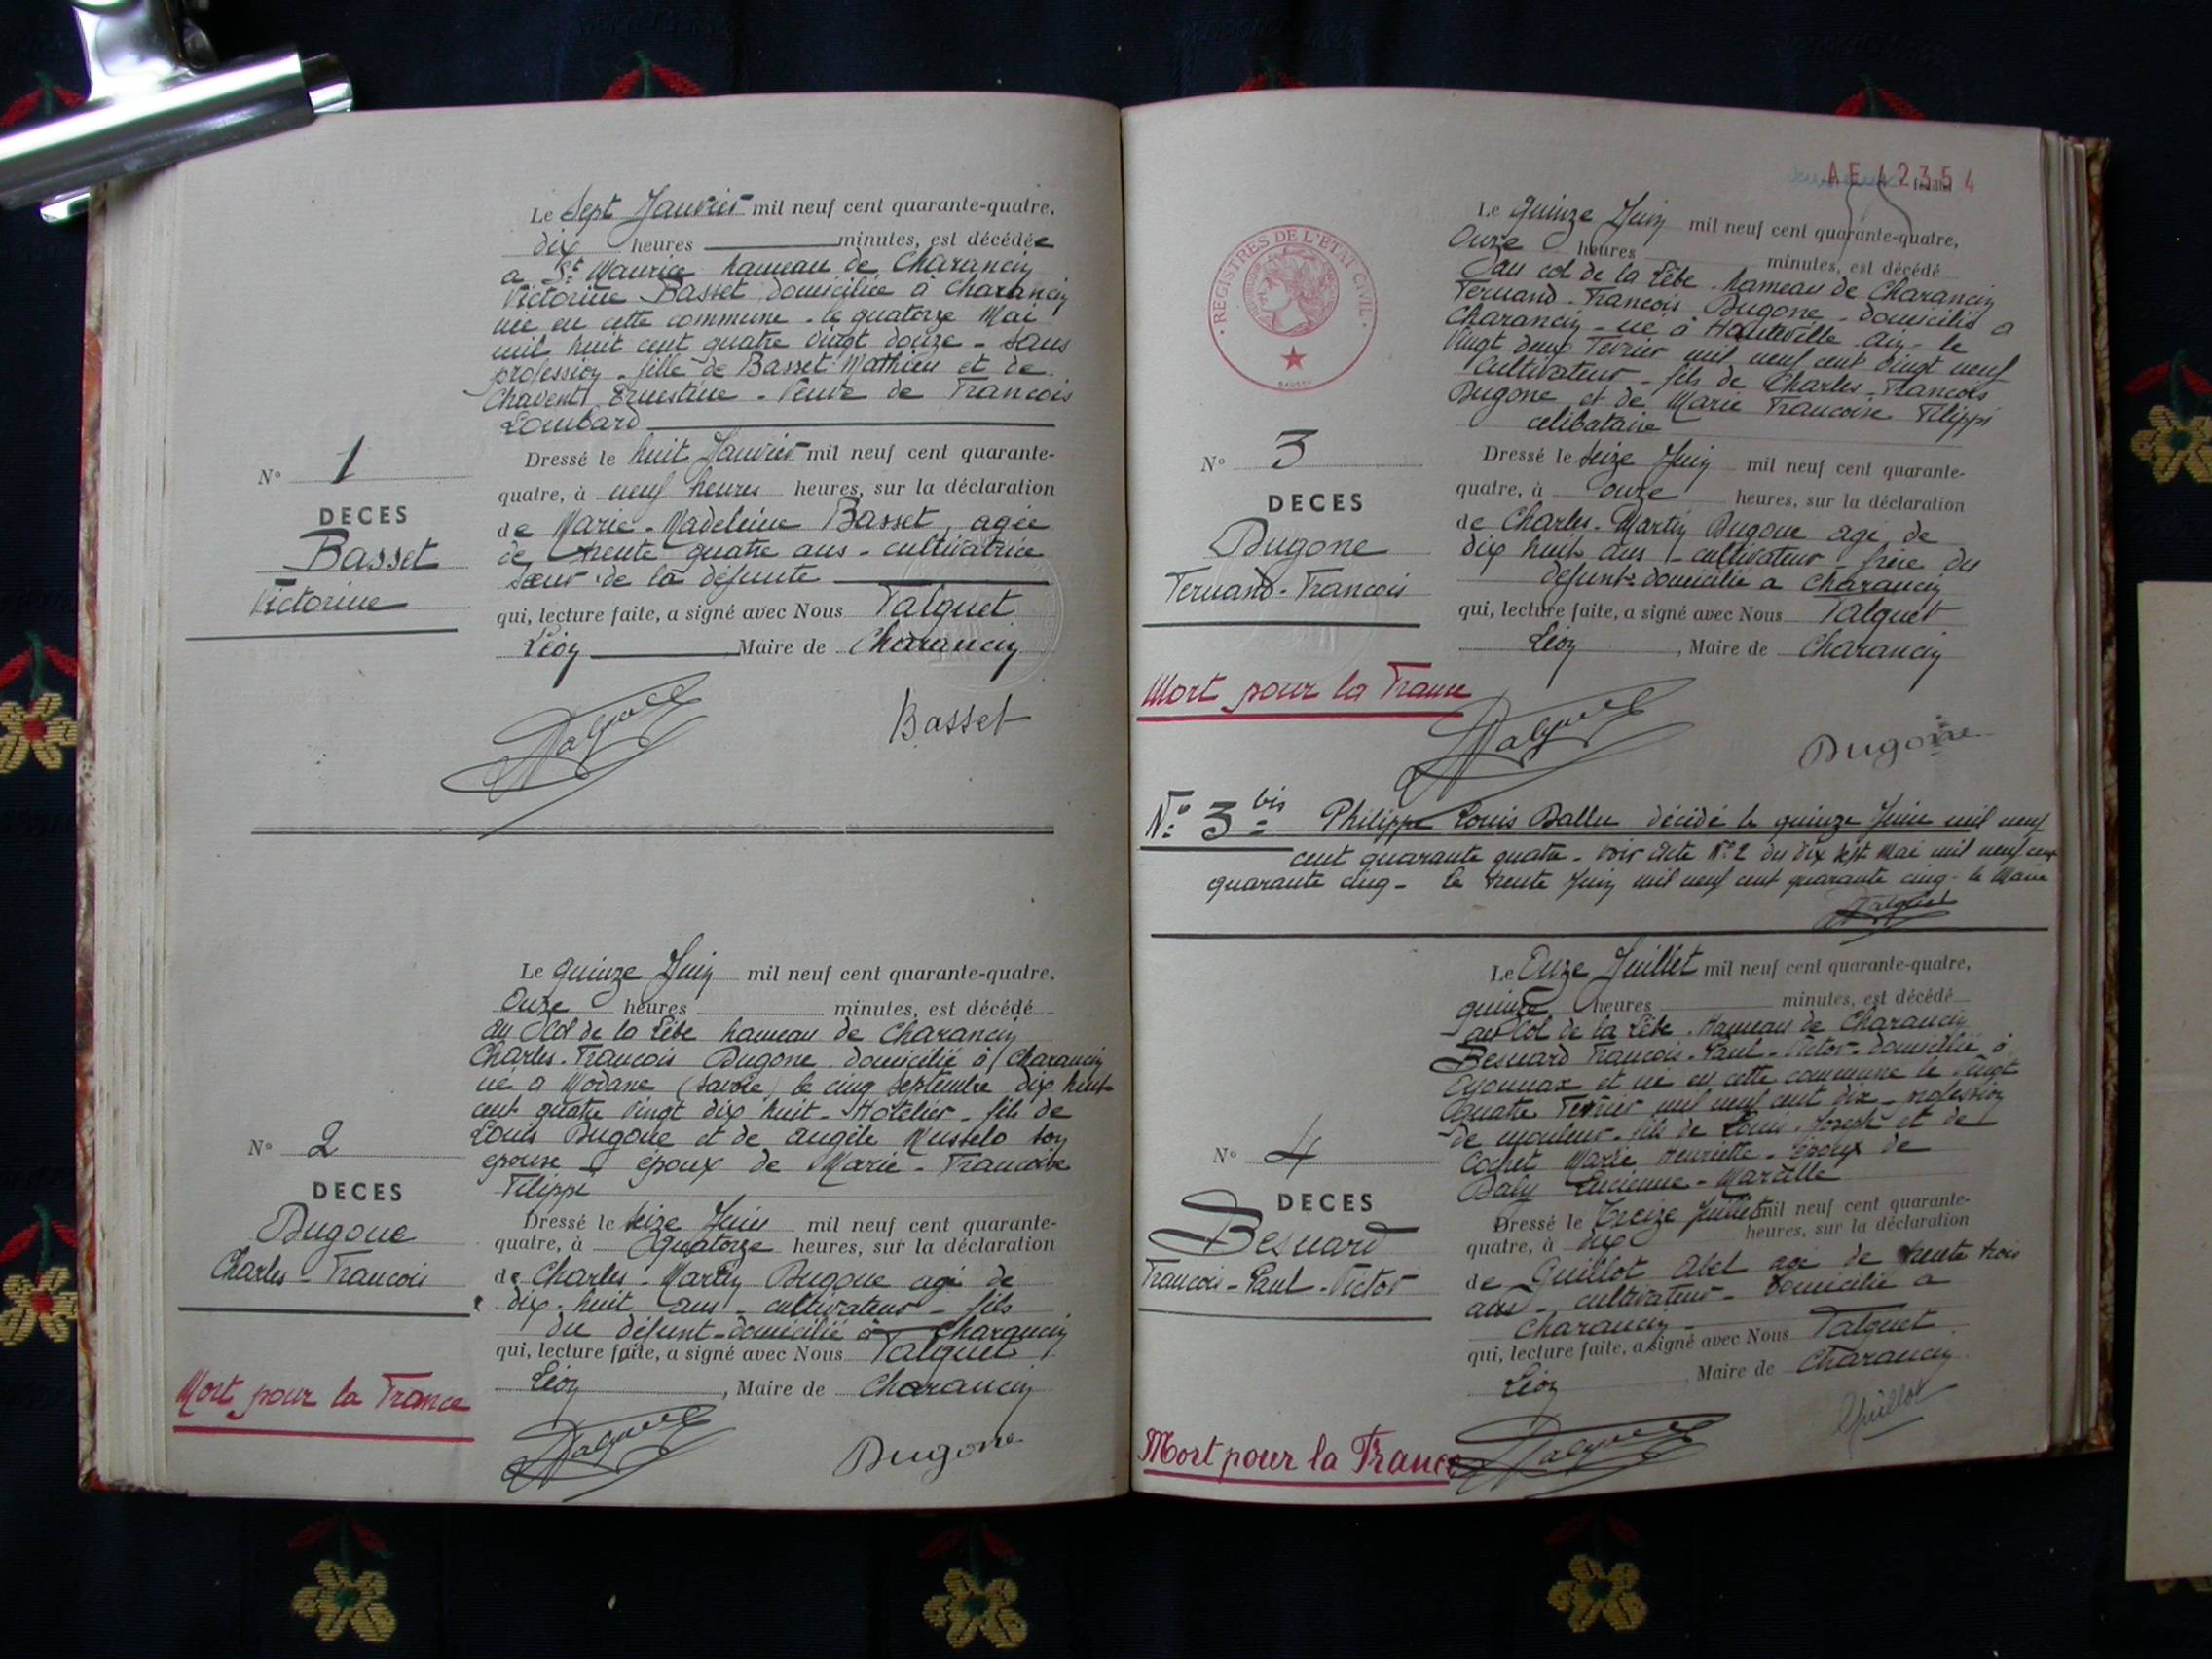 Le Sept Janvier mil neuf cent quarante-quatre,
dix heures minutes, est décédée
a St Maurice hameau de Charancin
Victorine Basset domiciliée à Charancin
née en cette commune - le quatorze Mai
mil huit cent quatre vingt douze - sans
profession - fille de Basset Mathieu et de
Chavent Ernestine - Veuve de Francois
Lombard
Dressé le huit Janvier mil neuf cent quarante-
quatre, à neuf heures heures, sur la déclaration
de Marie-Madeleine Basset, agée
de trente quatre ans - cultivatrice
sœur de la défunte
qui, lecture faite, a signé avec Nous Falquet
Léon Maire de Charancin
N° 1
DECES
Basset
Victorine
Falquet
Basset
Le quinze Juin mil neuf cent quarante-quatre,
Onze heures minutes, est décédé
au Col de la Lèbe hameau de Charancin
Charles-Francois Dugone domicilié à Charancin
né a Modane (Savoie) le cinq Septembre dix huit
cent quatre vingt dix huit - Hotelier - fils de
Louis Dugone et de Angèle Musselo son
epouse - époux de Marie-Francoise
Filippi
Dressé le Seize Juin mil neuf cent quarante-
quatre, à Quatorze heures, sur la déclaration
de Charles-Martin Dugone agé de
dix-huit ans - cultivateur - fils
du défunt - domicilié à Charancin
qui, lecture faite, a signé avec Nous Falquet
Léon, Maire de Charancin
N° 2
DECES
Dugone
Charles-Francois
Mort pour la France
Falquet
Dugone
AE 42354
feuillet
REGISTRES DE L'ÉTAT CIVIL
Le quinze Juin mil neuf cent quarante-quatre,
Onze heures minutes, est décédé
au col de la Lèbe - hameau de Charancin
Fernand-Francois Dugone - domicilié a
Charancin - né à Hauteville Ain - le
Vingt deux Fevrier mil neuf cent vingt neuf
Cultivateur - fils de Charles-Francois
Dugone et de Marie Francoise Filippi
célibataire
Dressé le Seize Juin mil neuf cent quarante-
quatre, à onze heures, sur la déclaration
de Charles-Martin Dugone agé de
dix huit ans - cultivateur - frère du
défunt - domicilié a Charancin
qui, lecture faite, a signé avec Nous Falquet
Léon, Maire de Charancin
N° 3
DECES
Dugone
Fernand-Francois
Mort pour la France
Falquet
Dugone
N° 3 bis Philippe Louis Ballu décédé le quinze Juin mil neuf
cent quarante quatre - voir acte N° 2 du dix sept Mai mil neuf cent
quarante cinq - le trente Juin mil neuf cent quarante cinq - le Maire
Falquet
Le Onze Juillet mil neuf cent quarante-quatre,
quinze heures minutes, est décédé
au Col de la Lèbe - Hameau de Charancin
Besnard Francois-Paul-Victor - domicilié à
Oyonnax et né en cette commune le vingt
Quatre Fevrier mil neuf cent dix - profession
de mouleur - fils de Louis-Joseph et de
Cochet Marie Henriette - Epoux de
Baby Lucienne-Marcelle
Dressé le treize Juillet mil neuf cent quarante-
quatre, à dix heures, sur la déclaration
de Guillot Abel agé de trente trois
ans - cultivateur - Domicilié a
Charancin
qui, lecture faite, a signé avec Nous Falquet
Léon, Maire de Charancin
N° 4
DECES
Besnard
Francois-Paul-Victor
Mort pour la France
Falquet
Guillot